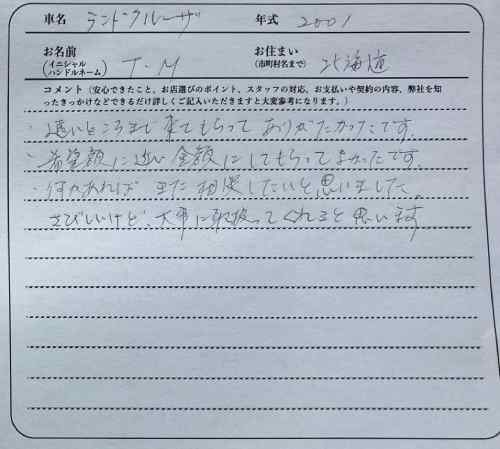 車名 ランドクルーザ 年式 2001
お名前 (イニシャル ハンドルネーム) T・M お住まい (市町村名まで) 北海道
コメント（安心できたこと、お店選びのポイント、スタッフの対応、お支払いや契約の内容、弊社を知
ったきっかけなどできるだけ詳しくご記入いただきますと大変参考になります。）
・遠いところまで来てもらってありがたかったです。
・希望額に近い金額にしてもらってよかったです。
・何かあればまた相談したいと思いました
さびしいけど、大事に取扱ってくれると思います